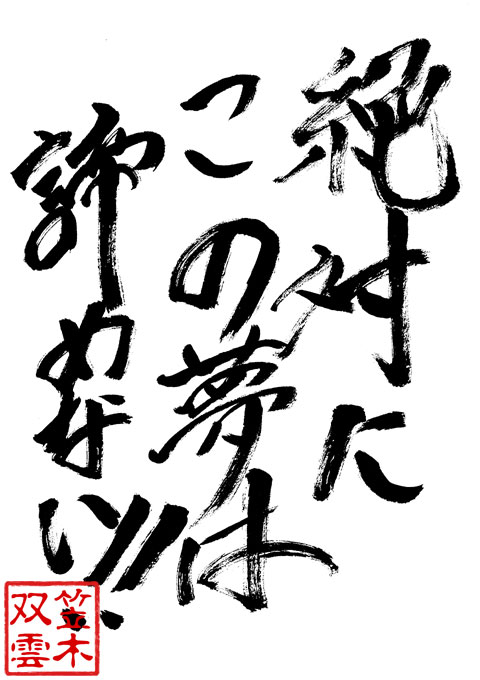 絶対に
この夢は
諦めない!!
笠木
双雲